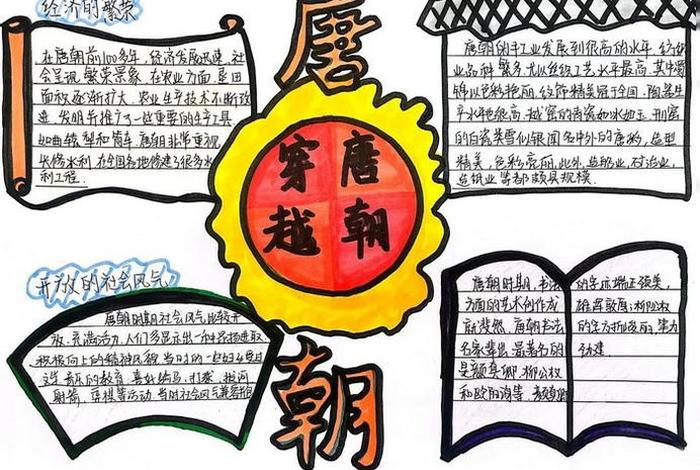 经济的繁荣
在唐朝前100多年,经济发展迅速,社
会呈现繁荣景象,在农业方面,垦田
面积逐渐扩大,农业生产技术不断改
进,发明并推广了一些重要的生产工具
如曲辕犁和筒车,唐朝非常重视
兴修水利,在全国各地修建了很多水
利工程.
唐
唐朝的手工业发展到很高的水平,纺织
业品种繁多,尤以丝织工艺水平最高,其中蜀
锦以色彩艳丽,纹饰精美冠于全国,陶瓷生
产水平也很高,越窑的青瓷如冰如玉,邢窑
的白瓷类雪似银闻名中外的唐彩,造型
精美,色彩亮丽,此外,造船业,矿冶业,
造纸业等都颇具规模.
穿越
唐朝
开放的社会风气
唐朝时期社会风气比较开
放,充满活力,人们多显示出一种昂扬进取
积极向上的精神风貌,当时的一些妇女受过
诗,音乐的教育,喜好骑马,打球,拔河
射箭,弈棋等活动,当时社会风气兼容并包
朝
唐朝时期,书法
方面的艺术创作成
就斐然,唐朝书法
名家辈出,最著名的
是颜真卿,柳公权
和欧阳询等,颜真卿
的字端正强美,
雄浑敦厚;柳公权
的字方折峻丽,笔力
劲健.